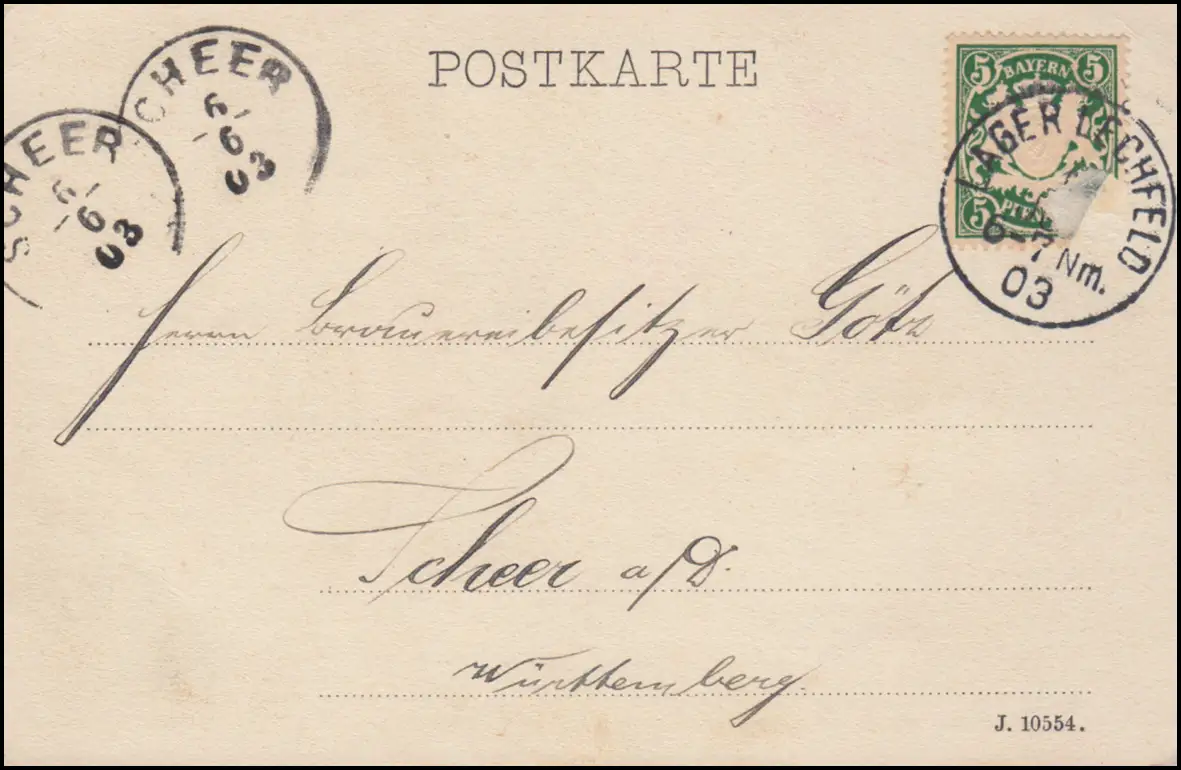 POSTKARTE
SCHEER
6
6
03
SCHEER
6
6
03
5 BAYERN 5
5
LAGER LECHFELD
7 Nm.
03
Herrn Brauereibesitzer Götz
Scheer a/D.
Württemberg.
J. 10554.